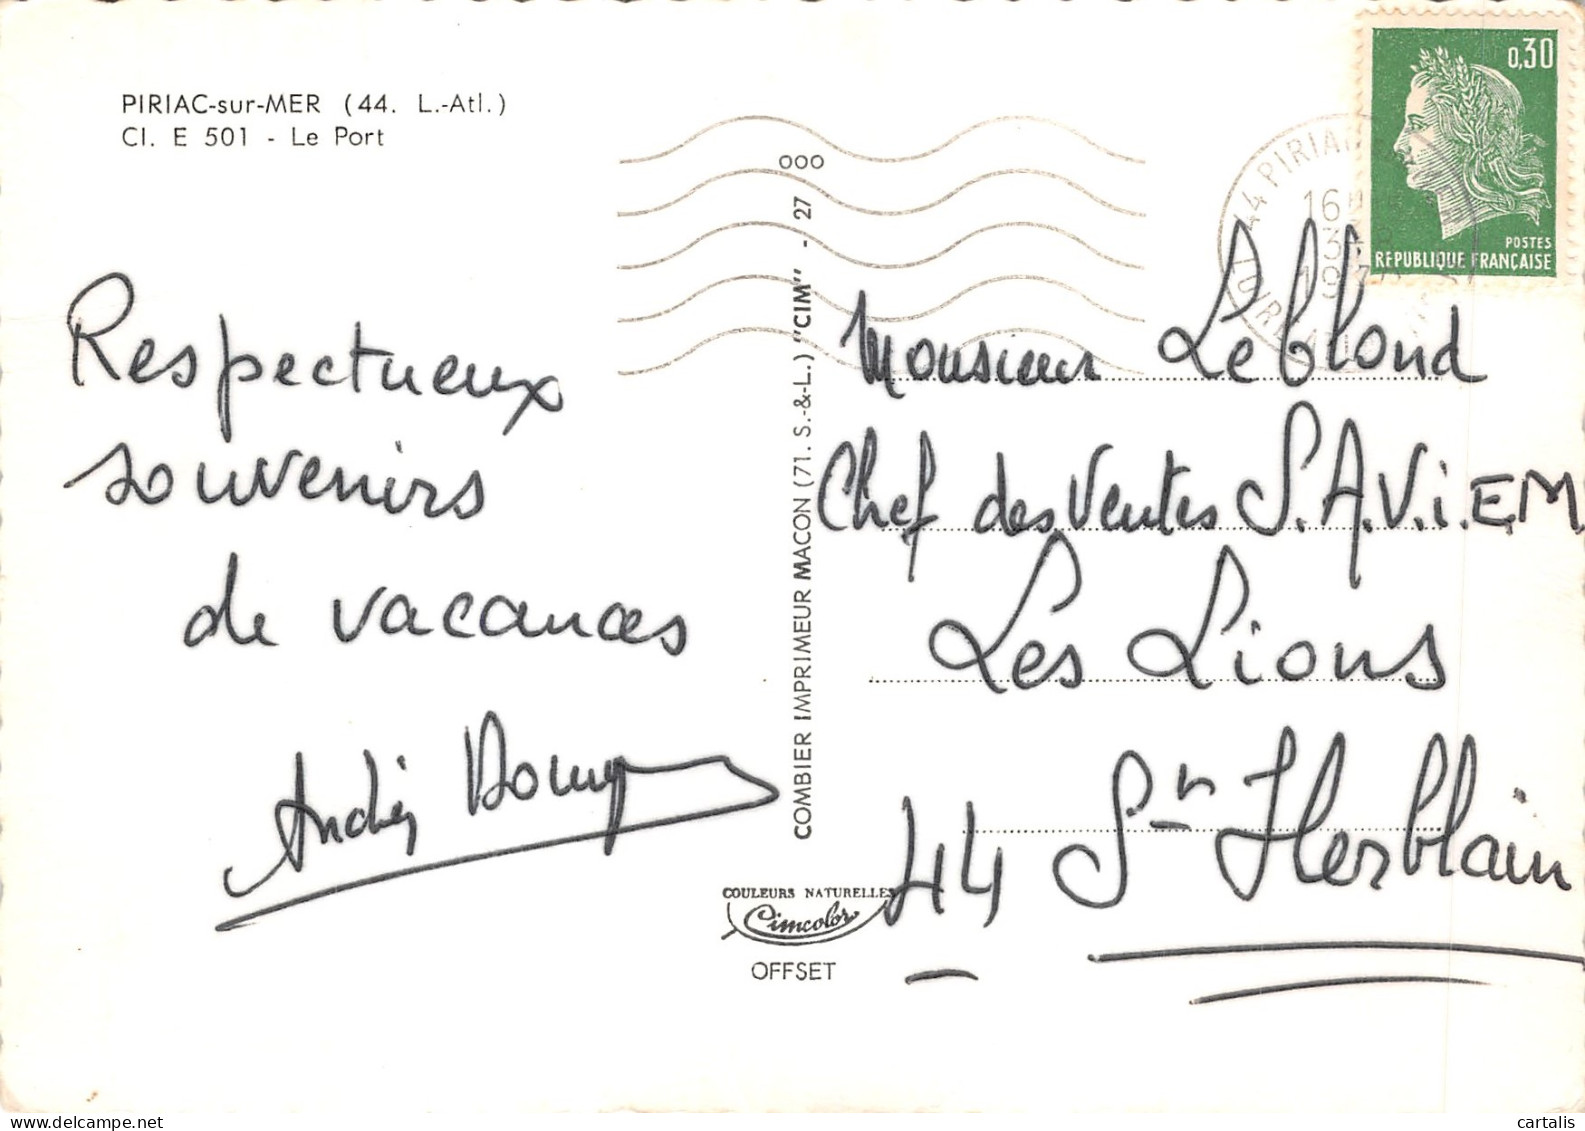 PIRIAC-sur-MER (44. L.-Atl.)
Cl. E 501 - Le Port
Respectueux
souvenirs
de vacances
COMBIER IMPRIMEUR MACON (71. S.-&-L.) "CIM" - 27
000
COULEURS NATURELLES
Cimcolor
OFFSET
0,30
POSTES
REPUBLIQUE FRANÇAISE
44 PIRIAC
16
Monsieur Leblond
Chef des Ventes S.A.V.i.E.M.
Les Lions
44 St Herblain
cartalis